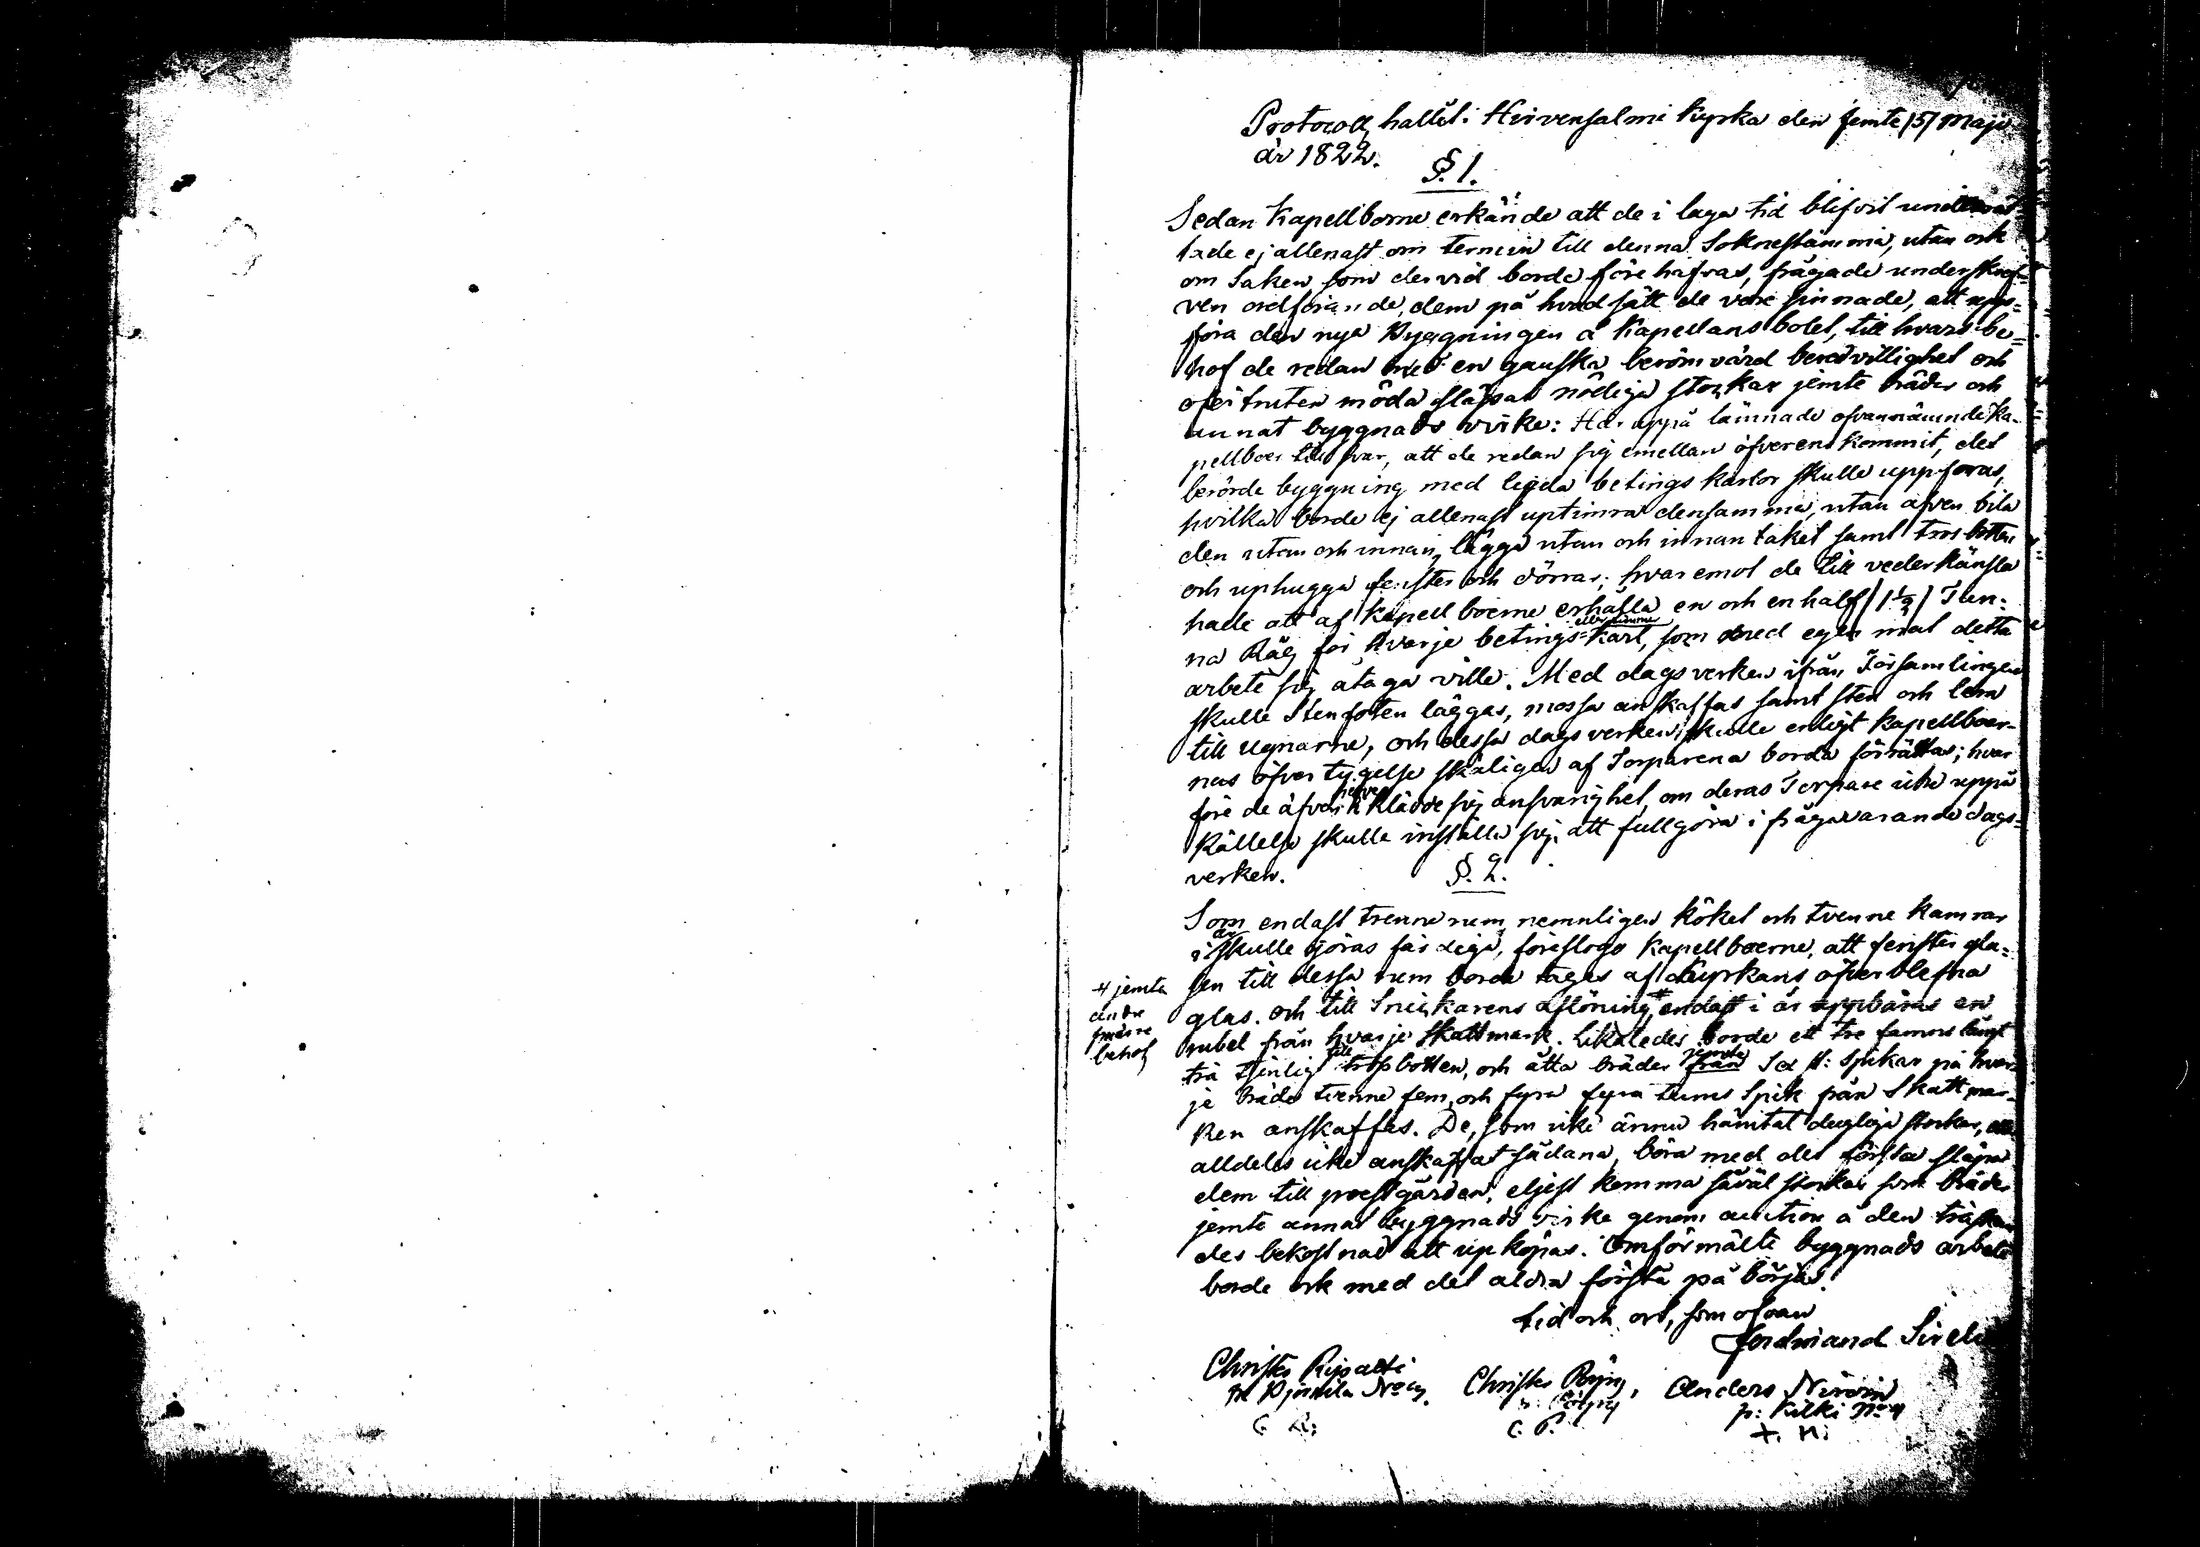 Protocoll, hallit i Hirvensalmi Kyrka den femte /5/ Maji
år 1822.
§. 1.
Sedan Kapellborne erkände att de i laga tid blifvit underrät-
tade ej allenast om termin till denna Soknestämma, utan ock
om Saken som dervid borde före hafvas, frågade underskref-
ven ordförande, dem på hvad sätt de vore sinnade, att upp-
föra den nya Byggningen å Kapellans bolet, till hvars be-
hof de redan med en ganska berömvärd beredvillighet och
oförtruten möda släpat nödiga stockar jemte bräder och
annat byggnads virke: Här uppå lämnade ofvannämnde Ka-
pellboer till svar, att de redan sig emellan öfverenskommit, det
berörde byggning med legda betings karlar skulle uppföras,
hvilka borde ej allenast uptimra densamma, utan äfven bila
den utan och innan, lägga utan och innan taket samt tros botten
och uphugga fenster och dörrar; hvaremot de till vederkänsla
hade att af kapellboerne erhålla en och en half /1½/ Tun-
na Råg för hvarje betings-Karl, som med egen mat detta
arbete sig åtaga ville. Med dagsverken ifrån Församlingen
skulle Stenfoten läggas, mossa anskaffas samt sten och lera
till Ugnarne, och dessa dagsverken skulle enligt kapellboer-
nas öfvertygelse skäligen af Torparena borda förrättas; hvar
före de äfven klädde sig ansvarighet, om deras Torpare icke uppå
kallelse skulle inställa sig, att fullgöra i frågavarande dags-
verken.
§. 2.
Som endast trenne rum, nemnligen köket och tvenne kamrar
i år skulle göras färdiga, föreslogo Kapellboerne, att fenster gla-
sen till dessa rum borde tages af Kyrkans öfverblefna
glas. och till Snickarens aflöning # endast i år uppbäras en
rubel från hvarje Skattmark. Likaledes borde ett tre famns långt
trä tjenligt till trossbotten, och åtta bräder jemte Sex st: spikar på hvar-
je bräde tvenne fem, och fyra fyra tums Spik från Skattmar-
ken anskaffas. De, som icke ännu hämtat dugliga stockar, eller
alldeles icke anskaffat sådana, böra med det första släpa
dem till prestgården, eljest komma såväl stockar som bräder
jemte annat byggnads virke genom auction å den tredskan-
des bekostnad att upköpas. Omförmälte byggnads arbete
borde ock med det aldra första på börjas.
# jemte
andre
smärre
behof
tid och ort, som ofvan
Ferdinand Sireli
Christer Ripatti
Christer Röjny,
Anders Nironin
p: Kilki No 4
C. R:
C. R.
+. N: